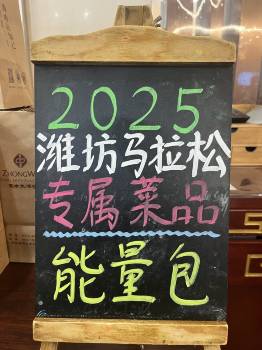 2025
潍坊马拉松
专属菜品
能量包